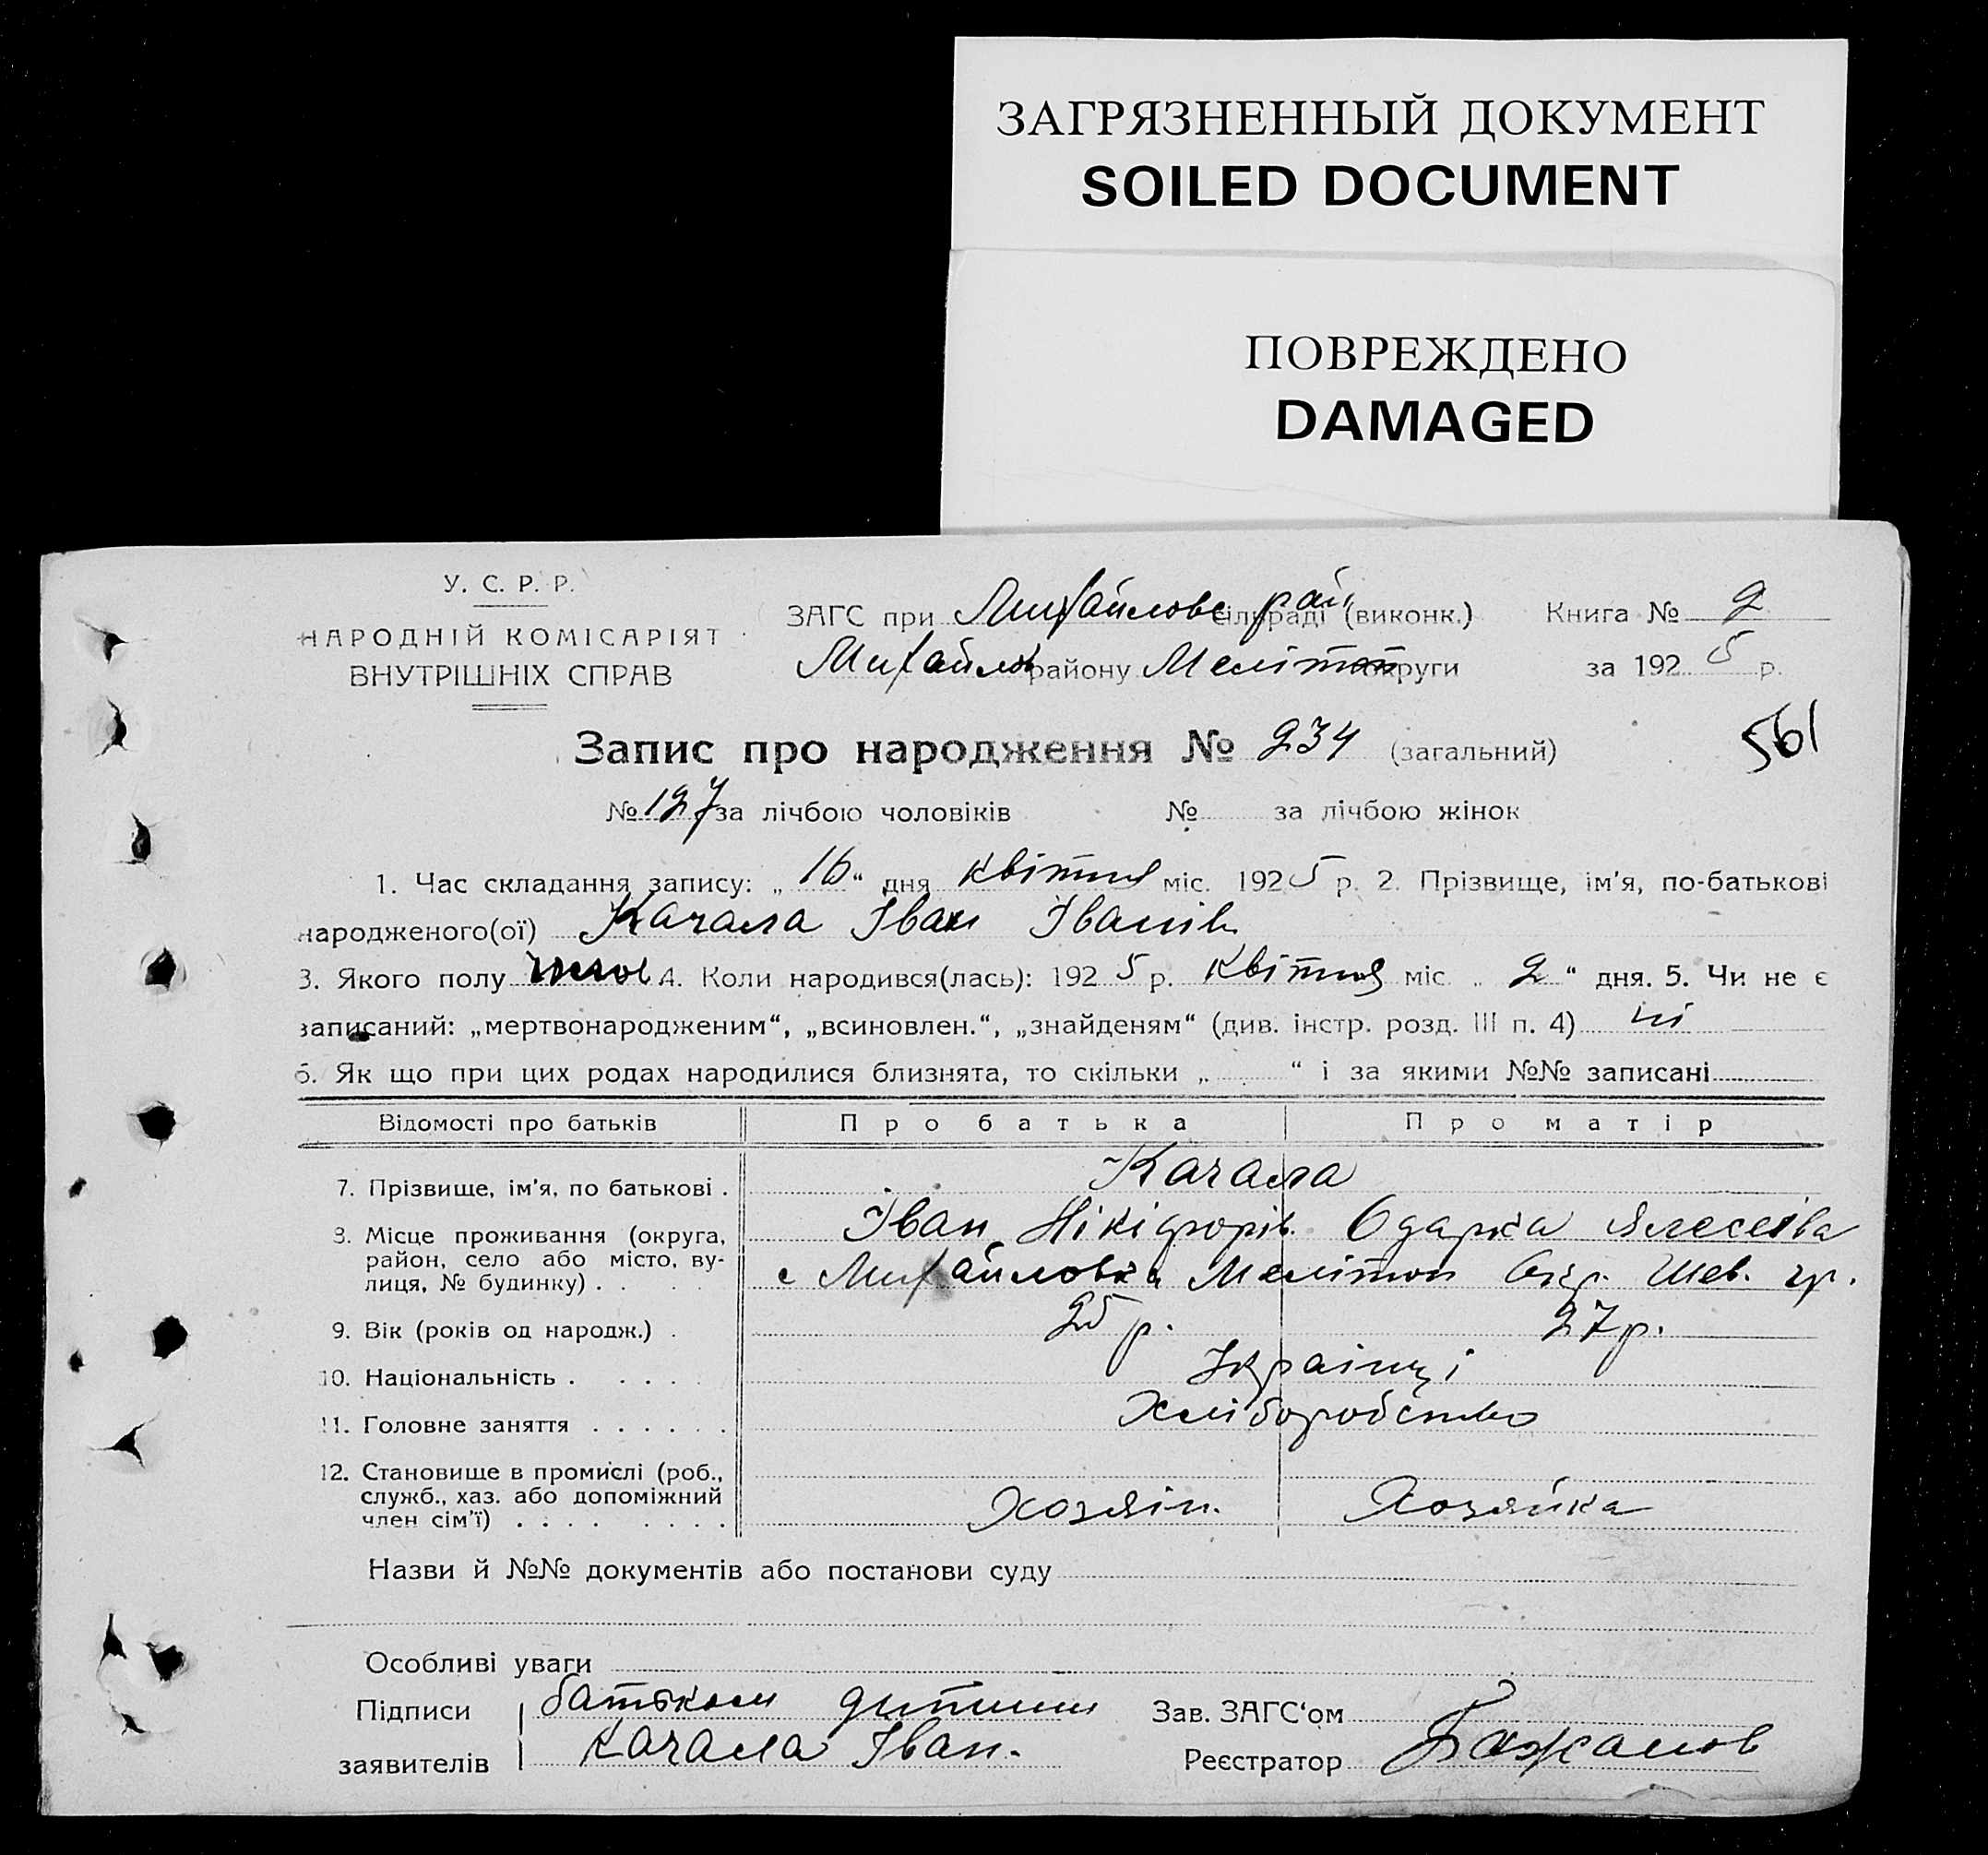 ЗАГРЯЗНЕННЫЙ ДОКУМЕНТ
SOILED DOCUMENT
ПОВРЕЖДЕНО
DAMAGED
У. С. Р. Р.
НАРОДНІЙ КОМІСАРІЯТ
ВНУТРІШНІХ СПРАВ
ЗАГС при Михайловс рай сільраді (виконк.) Книга № 2
Михайлов району Мелітоп округи за 1925 р.
561
Запис про народження № 234 (загальний)
№ 127 за лічбою чоловіків № за лічбою жінок
1. Час складання запису: „16“ дня квітня міс. 1925 р. 2. Прізвище, ім'я, по-батькові
народженого(ої) Качала Іван Іванів
3. Якого полу чолов 4. Коли народився(лась): 1925 р. квітня міс. „2“ дня. 5. Чи не є
записаний: „мертвонародженим“, „всиновлен.“, „знайденям“ (див. інстр. розд. III п. 4) ні
6. Як що при цих родах народилися близнята, то скільки „ “ і за якими №№ записані
Відомості про батьків Про батька Про матір
Качала
7. Прізвище, ім'я, по батькові .
Іван Нікіфорів Одарка Алексеівна
8. Місце проживання (округа,
район, село або місто, ву-
лиця, № будинку) . . . .
с Михайловка Мелітоп Окр. Шев. гр.
9. Вік (років од народж.) . 25 р. 27 р.
10. Національність . . . . . Українці
11. Головне заняття . . . . . . Хліборобство
12. Становище в промислі (роб.,
служб., хаз. або допоміжний
член сім'ї) . . . . . . . .
Хозяін. Хозяйка
Назви й №№ документів або постанови суду
Особливі уваги
Підписи батьком дитини Зав. ЗАГС'ом
заявителів Качала Іван. Реєстратор Бажанов